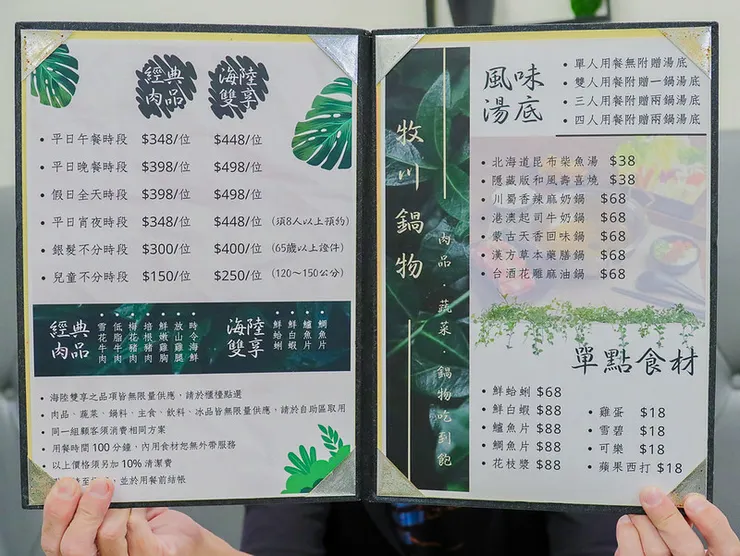 經典肉品
海陸雙享
• 平日午餐時段 $348/位 $448/位
• 平日晚餐時段 $398/位 $498/位
• 假日全天時段 $398/位 $498/位
• 平日宵夜時段 $348/位 $448/位 (須8人以上預約)
• 銀髮不分時段 $300/位 $400/位 (65歲以上證件)
• 兒童不分時段 $150/位 $250/位 (120~150公分)
經典肉品
雪花牛肉
低脂牛肉
梅花豬肉
培根豬肉
鮮嫩雞胸
放山雞腿
時令海鮮
海陸雙享
鮮蛤蜊
鮮白蝦
鱸魚片
鯛魚片
• 海陸雙享之品項皆無限量供應，請於櫃檯點選
• 肉品、蔬菜、鍋料、主食、飲料、冰品皆無限量供應，請於自助區取用
• 同一組顧客須消費相同方案
• 用餐時間100分鐘，內用食材恕無外帶服務
• 以上價格須另加10%清潔費
，並於用餐前結帳
牧川鍋物
肉品．蔬菜．鍋物吃到飽
風味湯底
• 單人用餐無附贈湯底
• 雙人用餐附贈一鍋湯底
• 三人用餐附贈兩鍋湯底
• 四人用餐附贈兩鍋湯底
• 北海道昆布柴魚湯 $38
• 隱藏版和風壽喜燒 $38
• 川蜀香辣麻奶鍋 $68
• 港澳起司牛奶鍋 $68
• 蒙古天香回味鍋 $68
• 漢方草本藥膳鍋 $68
• 台酒花雕麻油鍋 $68
單點食材
• 鮮蛤蜊 $68
• 鮮白蝦 $88
• 鱸魚片 $88
• 鯛魚片 $88
• 花枝漿 $88
• 雞蛋 $18
• 雪碧 $18
• 可樂 $18
• 蘋果西打 $18